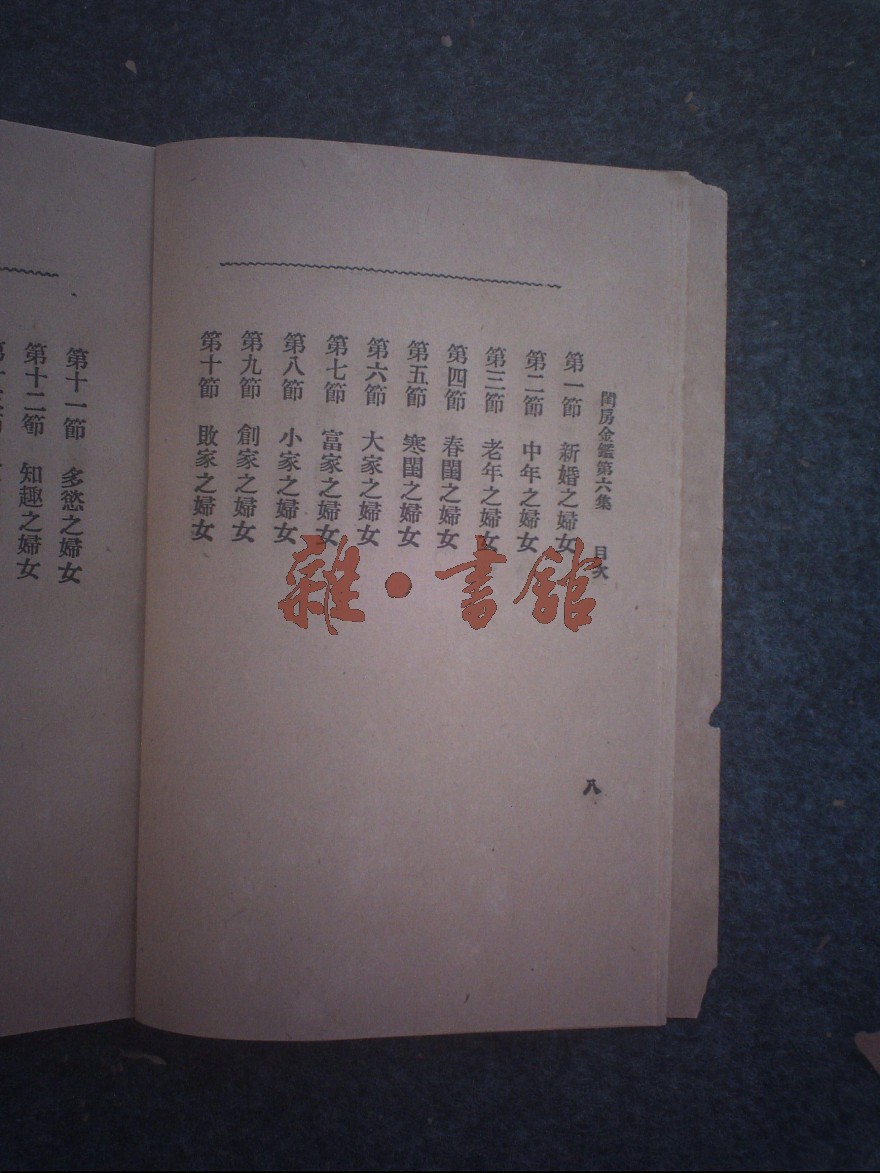 閨房金鑑第六集 目次
第一節 新婚之婦女
第二節 中年之婦女
第三節 老年之婦女
第四節 春閨之婦女
第五節 寒閨之婦女
第六節 大家之婦女
第七節 富家之婦女
第八節 小家之婦女
第九節 創家之婦女
第十節 敗家之婦女
八
第十一節 多慾之婦女
第十二節 知趣之婦女
雜·書館